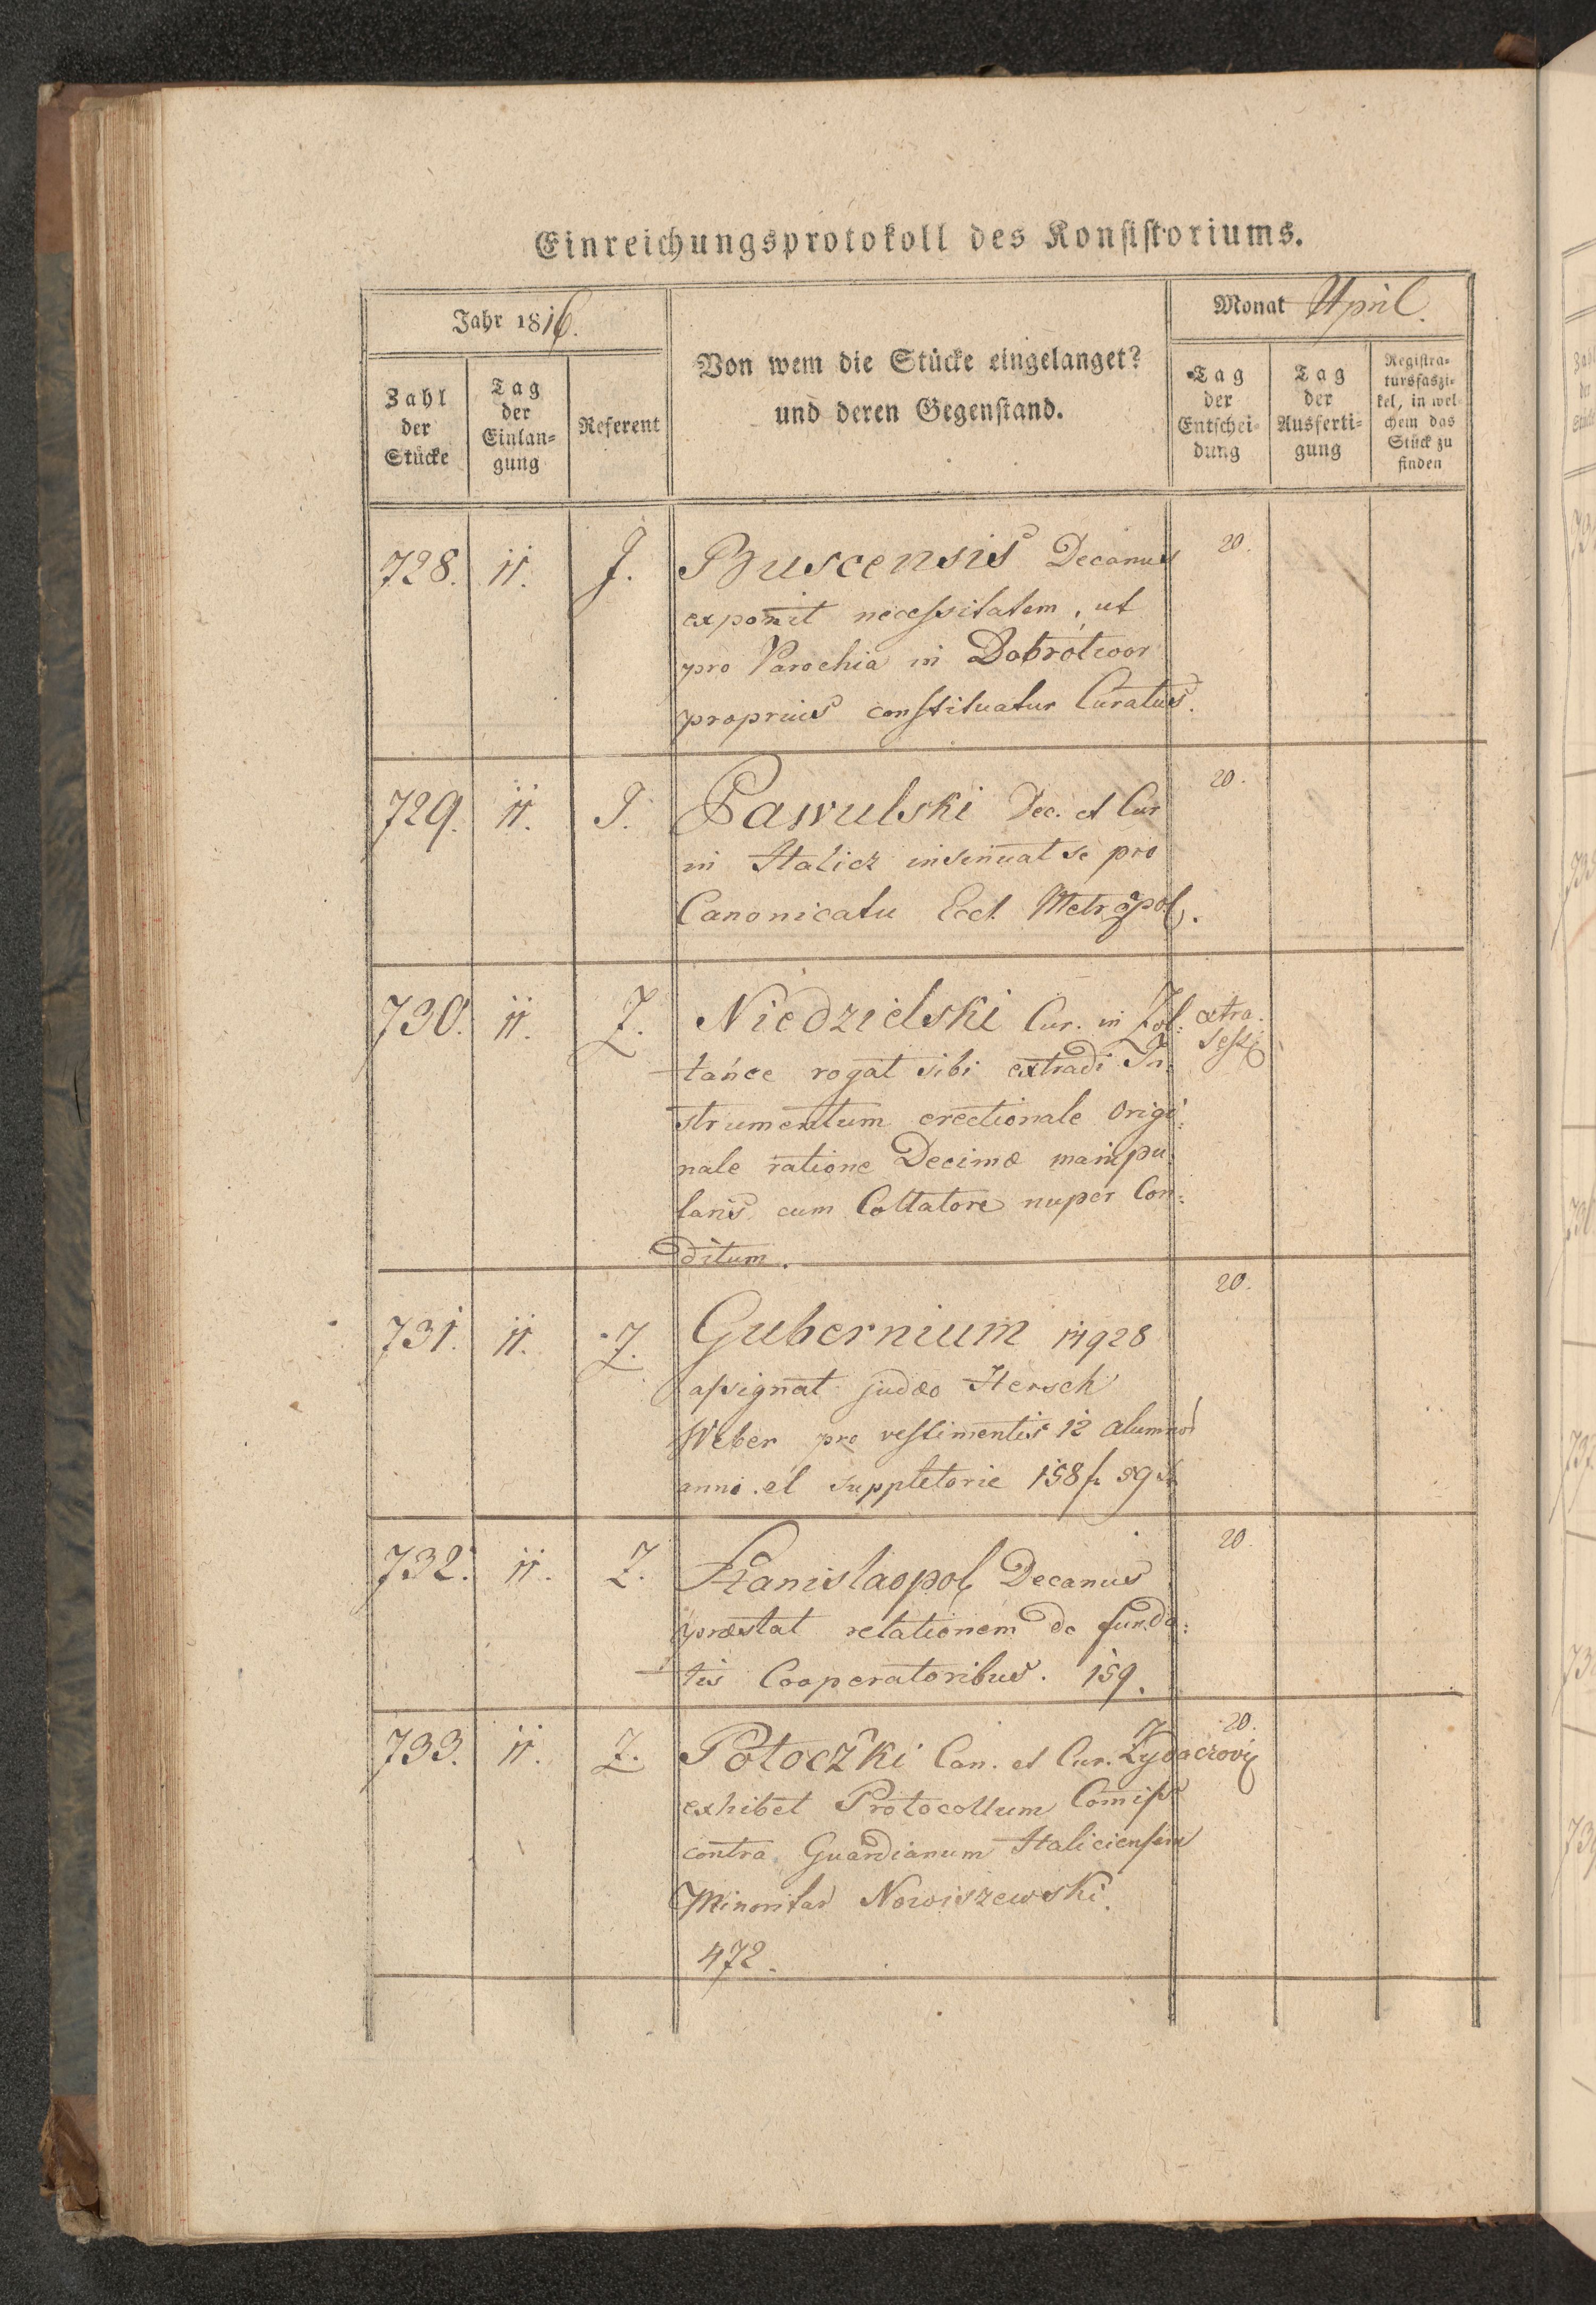 Einreichungsprotokoll des Konsistoriums.
Jahr 1816.
Monat April.
Zahl der Stücke
Tag der Einlan= gung
Referent
Von wem die Stücke eingelanget?
und deren Gegenstand.
Tag der Entschei= dung
Tag der Ausferti= gung
Registra= tursfaszi= kel, in wel= chem das Stück zu finden
728. 11. J. Buscensis Decanus 20.
exponit necessitatem, ut
pro Parochia in Dobrotwor
proprius constituatur Curatus.
729. 11. J. Pawulski Dec. et Cur 20.
in Halicz insinuat se pro
Canonicatu Eccl. Metropol.
730. 11. Z. Niedzielski Cur. in Zol: extra
tańce rogat sibi extradi In: Sess
strumentum erectionale Origi:
nale ratione Decimæ manipu:
laris cum Collatore nuper Con:
ditum.
731. 11. Z. Gubernium 14928 20.
assignat judæo Hersch
Weber pro vestimentis 12 alumnor
anni el suppletorie 158 f 59 x
732. 11. Z. Stanislaopol Decanus 20.
præstat relationem de funda:
tis Cooperatoribus. 159.
733. 11. Z. Potoczki Can. et Cur. Zydaczovi 20.
exhibet Protocollum Comiss
contra Guardianum Haliciensem
Minoritar Nowiszewski.
472.